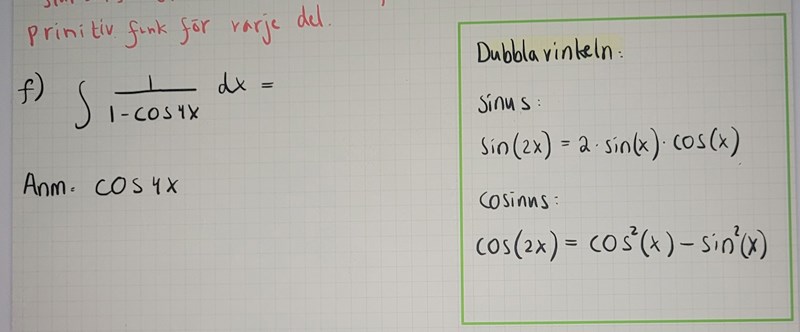 prinitiv funk för varje del.
f) ∫ 1/(1-cos4x) dx =
Anm. cos4x
Dubbla vinkeln:
sinus:
sin(2x) = 2·sin(x)·cos(x)
cosinus:
cos(2x) = cos²(x) - sin²(x)